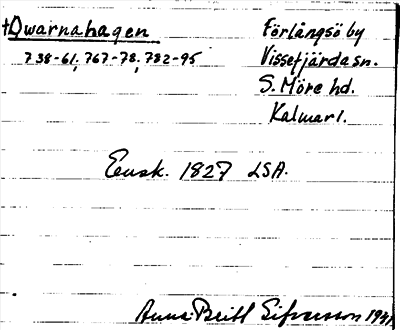 †Qwarnahagen
738-61, 767-78, 782-95
Förlångsö by
Vissefjärda sn.
S. Möre hd.
Kalmar l.
Ensk. 1827 LSA.
Anna-Britt Sifversson 1941